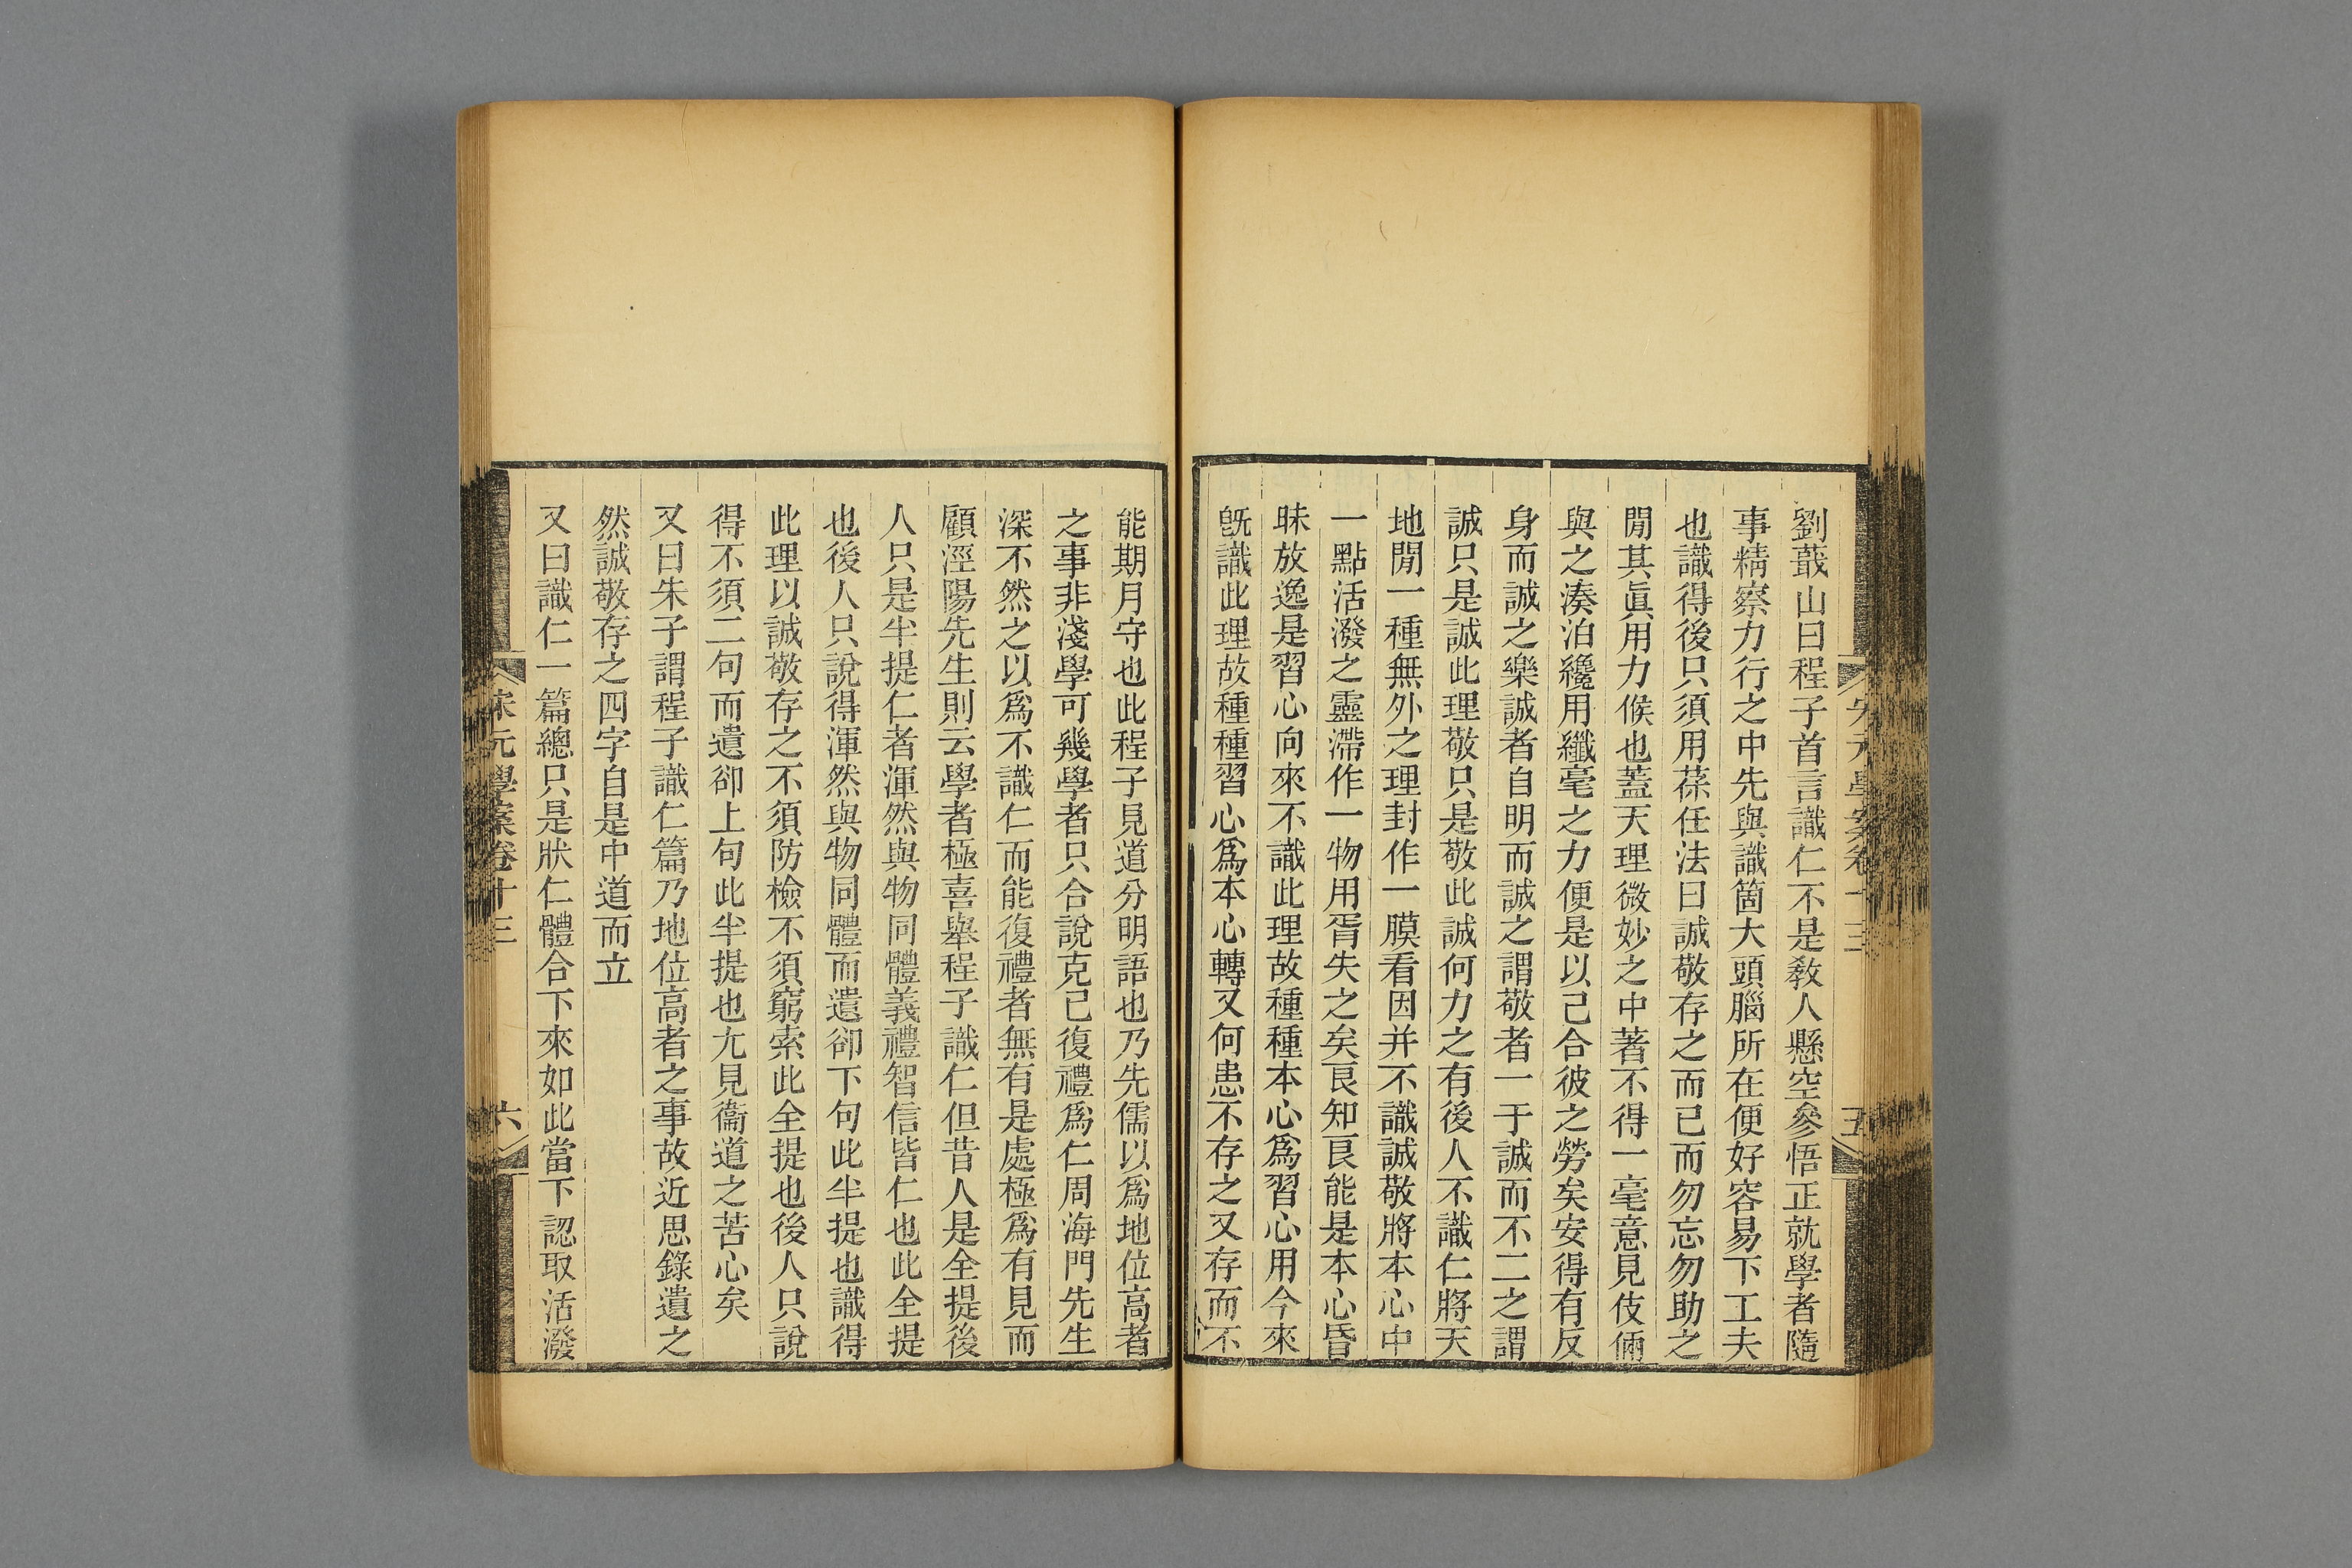 宋元學案卷十三
五
劉蕺山曰程子首言識仁不是敎人懸空參悟正就學者隨
事精察力行之中先與識箇大頭腦所在便好容易下工夫
也識得後只須用葆任法曰誠敬存之而已而勿忘勿助之
閒其眞用力候也蓋天理微妙之中著不得一毫意見伎倆
與之湊泊纔用纖毫之力便是以己合彼之勞矣安得有反
身而誠之樂誠者自明而誠之謂敬者一于誠而不二之謂
誠只是誠此理敬只是敬此誠何力之有後人不識仁將天
地閒一種無外之理封作一膜看因并不識誠敬將本心中
一點活潑之靈滯作一物用胥失之矣良知良能是本心昏
昧放逸是習心向來不識此理故種種本心爲習心用今來
旣識此理故種種習心爲本心轉又何患不存之又存而不
能期月守也此程子見道分明語也乃先儒以爲地位高者
之事非淺學可幾學者只合說克己復禮爲仁周海門先生
深不然之以爲不識仁而能復禮者無有是處極爲有見而
顧涇陽先生則云學者極喜舉程子識仁但昔人是全提後
人只是半提仁者渾然與物同體義禮智信皆仁也此全提
也後人只說得渾然與物同體而遺卻下句此半提也識得
此理以誠敬存之不須防檢不須窮索此全提也後人只說
得不須二句而遺卻上句此半提也尢見衞道之苦心矣
又曰朱子謂程子識仁篇乃地位高者之事故近思錄遺之
然誠敬存之四字自是中道而立
又曰識仁一篇總只是狀仁體合下來如此當下認取活潑
宋元學案卷十三
六